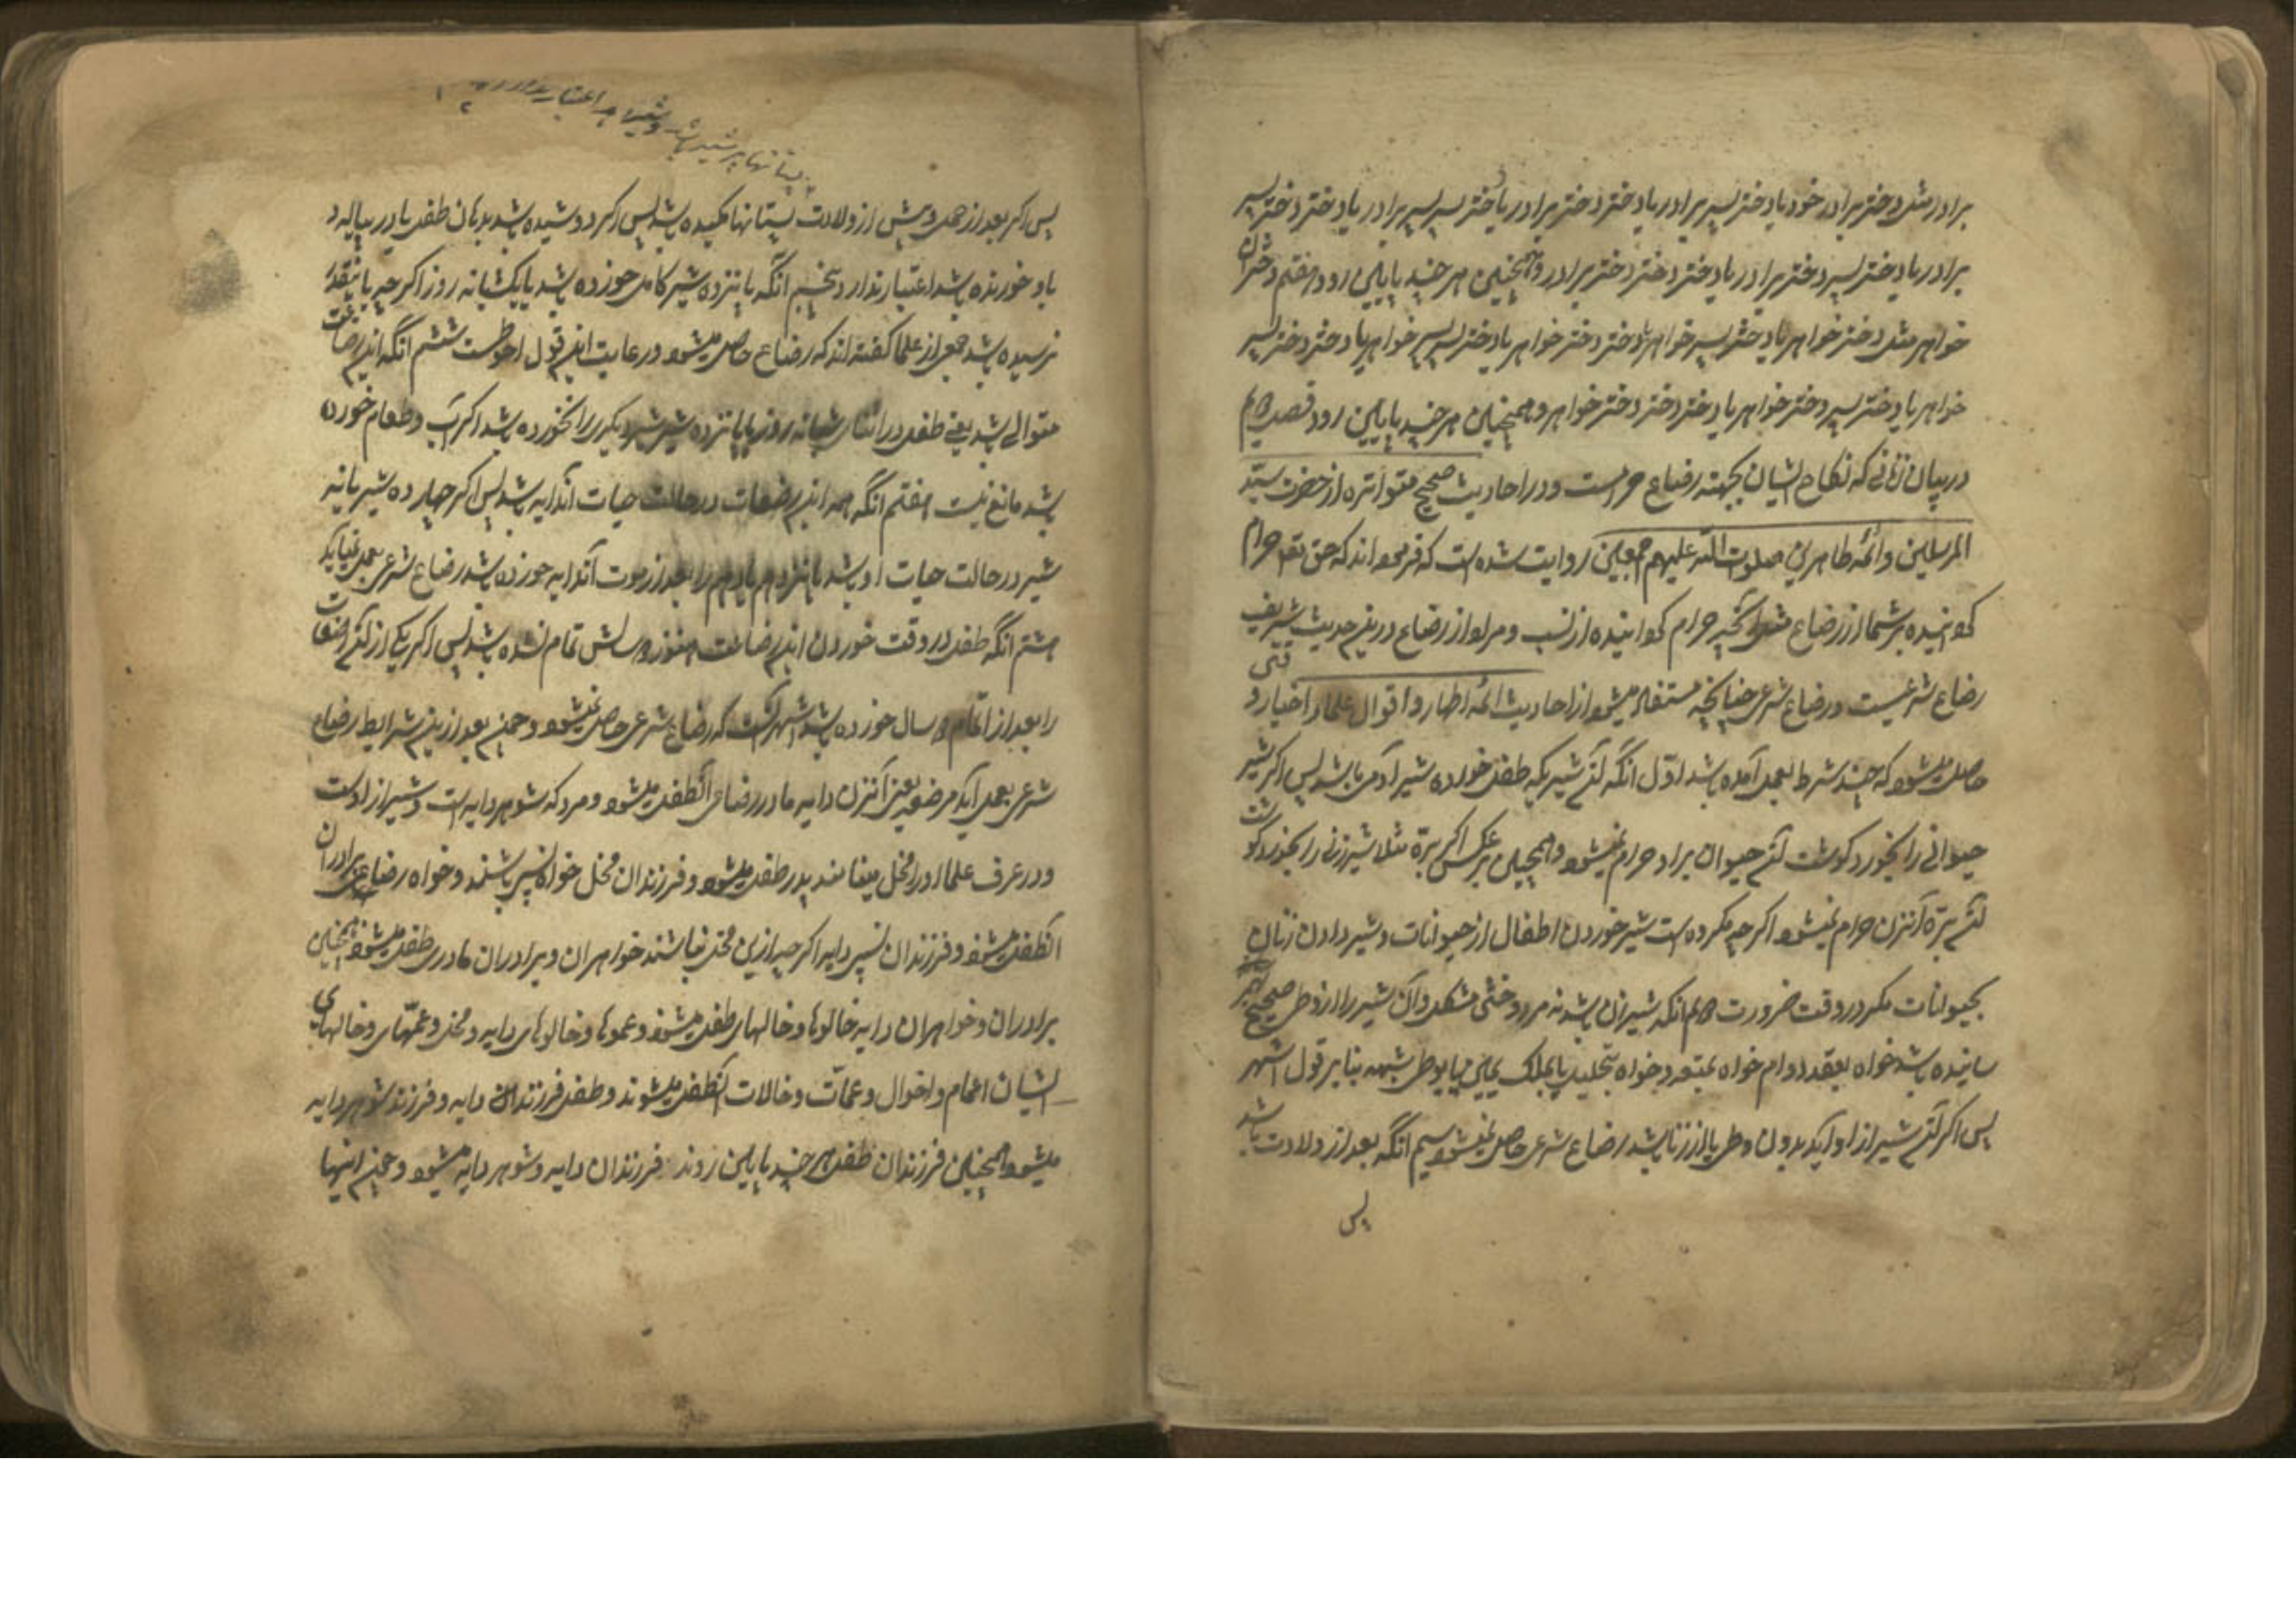 برادر مثل دختر برادر خود یا دختر پسر برادر یا دختر دختر برادر یا دختر پسر پسر برادر یا دختر دختر پسر
برادر یا دختر پسر دختر برادر یا دختر دختر دختر برادر و همچنین هر چند پایین رود هفتم دختران
خواهر مثل دختر خواهر یا دختر پسر خواهر یا دختر دختر خواهر یا دختر پسر پسر خواهر یا دختر دختر پسر
خواهر یا دختر پسر دختر خواهر یا دختر دختر دختر خواهر و همچنین هر چند پایین رود فصل دوم
در بیان زنانی که نکاح ایشان بجهته رضاع حرامست و در احادیث صحیح متواتره از حضرت سید
المرسلین و ائمه طاهرین صلوت الله علیهم اجمعین روایت شده است که فرموده اند که حق تعه حرام
کردانیده بر شما از رضاع مثل آنچه حرام کردانیده از نسب و مراد از رضاع درین حدیث شریف
رضاع شرعیست و رضاع شرعی چنانچه مستفاد میشود از احادیث ائمه اطهار و اقوال علماء اخیار وقتی
حاصل میشود که چند شرط بعمل آمده باشد اول آنکه آن شیریکه طفل خورده شیر آدمی باشد پس اکر شیر
حیوانی را بخورد کوشت آن حیوان براو حرام نمیشود و همچنین برعکس اکر برّه مثلا شیر زنی را بخورد کوشت
آن برّه بر آنزن حرام نمیشود اکرچه مکروه است شیر خوردن اطفال از حیوانات و شیر دادن زنان
بحیوانات مکر در وقت ضرورت دوم آنکه شیر زن باشد نه مرد و خنثی مشکل و آن شیر را از وطی صحیح بهم
رسانیده باشد خواه بعقد دوام خواه بمتعه و خواه بتحلیل یا بملک یمین یا بوطی شبهه بنابر قول اشهر
پس اکر آن شیر از او آید بدون وطی یا از زنا باشد رضاع شرعی حاصل نمیشود سیم آنکه بعد از ولادت باشد
پس
پستانها پر شیر باشد و شیر اعتبار ندارد
پس اکر بعد از حمل و پیش از ولادت پستانها مکیده باشد پس اکر دوشیده شد بدهان طفل یا در پیاله
باو خورنده باشد اعتبار ندارد پنجم آنکه پانزده شیر کامل خورده باشد یا یکشبانه روز اکرچه پانزده
نرسیده باشد جمعی از علما کفته اند که رضاع حاصل میشود و رعایت این قول احوطست ششم آنکه این رضعات
متوالی باشد یعنی طفل در اثنای شبانه روز یا پانزده شیر شیر دیکری را نخورده باشد اکر آب و طعام خورده
باشد مانع نیست هفتم آنکه همه این رضعات در حالت حیات آندایه باشد پس اکر چهارده شیر یا نه
شیر در حالت حیات او باشد پانزدهم یا دهم را بعد از موت آندایه خورده باشد رضاع شرعی بعمل نمیاید
هشتم آنکه طفل در وقت خوردن این رضعات هنوز دو سالش تمام نشده باشد پس اکر یکی از آن رضعات
را بعد از اتمام دو سال خورده باشد اشهر آنست که رضاع شرعی حاصل نمیشود و چون بعد ازین شرایط رضاع
شرعی بعمل آید مرضعه یعنی آنزن دایه مادر رضاعی آنطفل میشود و مرد که شوهر دایه است و شیر از اوست
و در عرف علما او را فحل مینامند پدر طفل میشود و فرزندان فحل خواه نسبی باشند و خواه رضاعی برادران
آنطفل میشوند و فرزندان نسبی دایه اکرچه ازین فحل نباشند خواهران و برادران مادری طفل میشوند و همچنین
برادران و خواهران دایه خالوها و خالهای طفل میشوند و عموها و خالوهای دایه و فحل و عمّهای و خالهای
ایشان اعمام و اخوال و عمّات و خالات آنطفل میشوند و طفل فرزندان دایه و فرزند شوهر دایه
میشود و همچنین فرزندان طفل هر چند پایین روند فرزندان دایه و شوهر دایه میشود و چون اینها